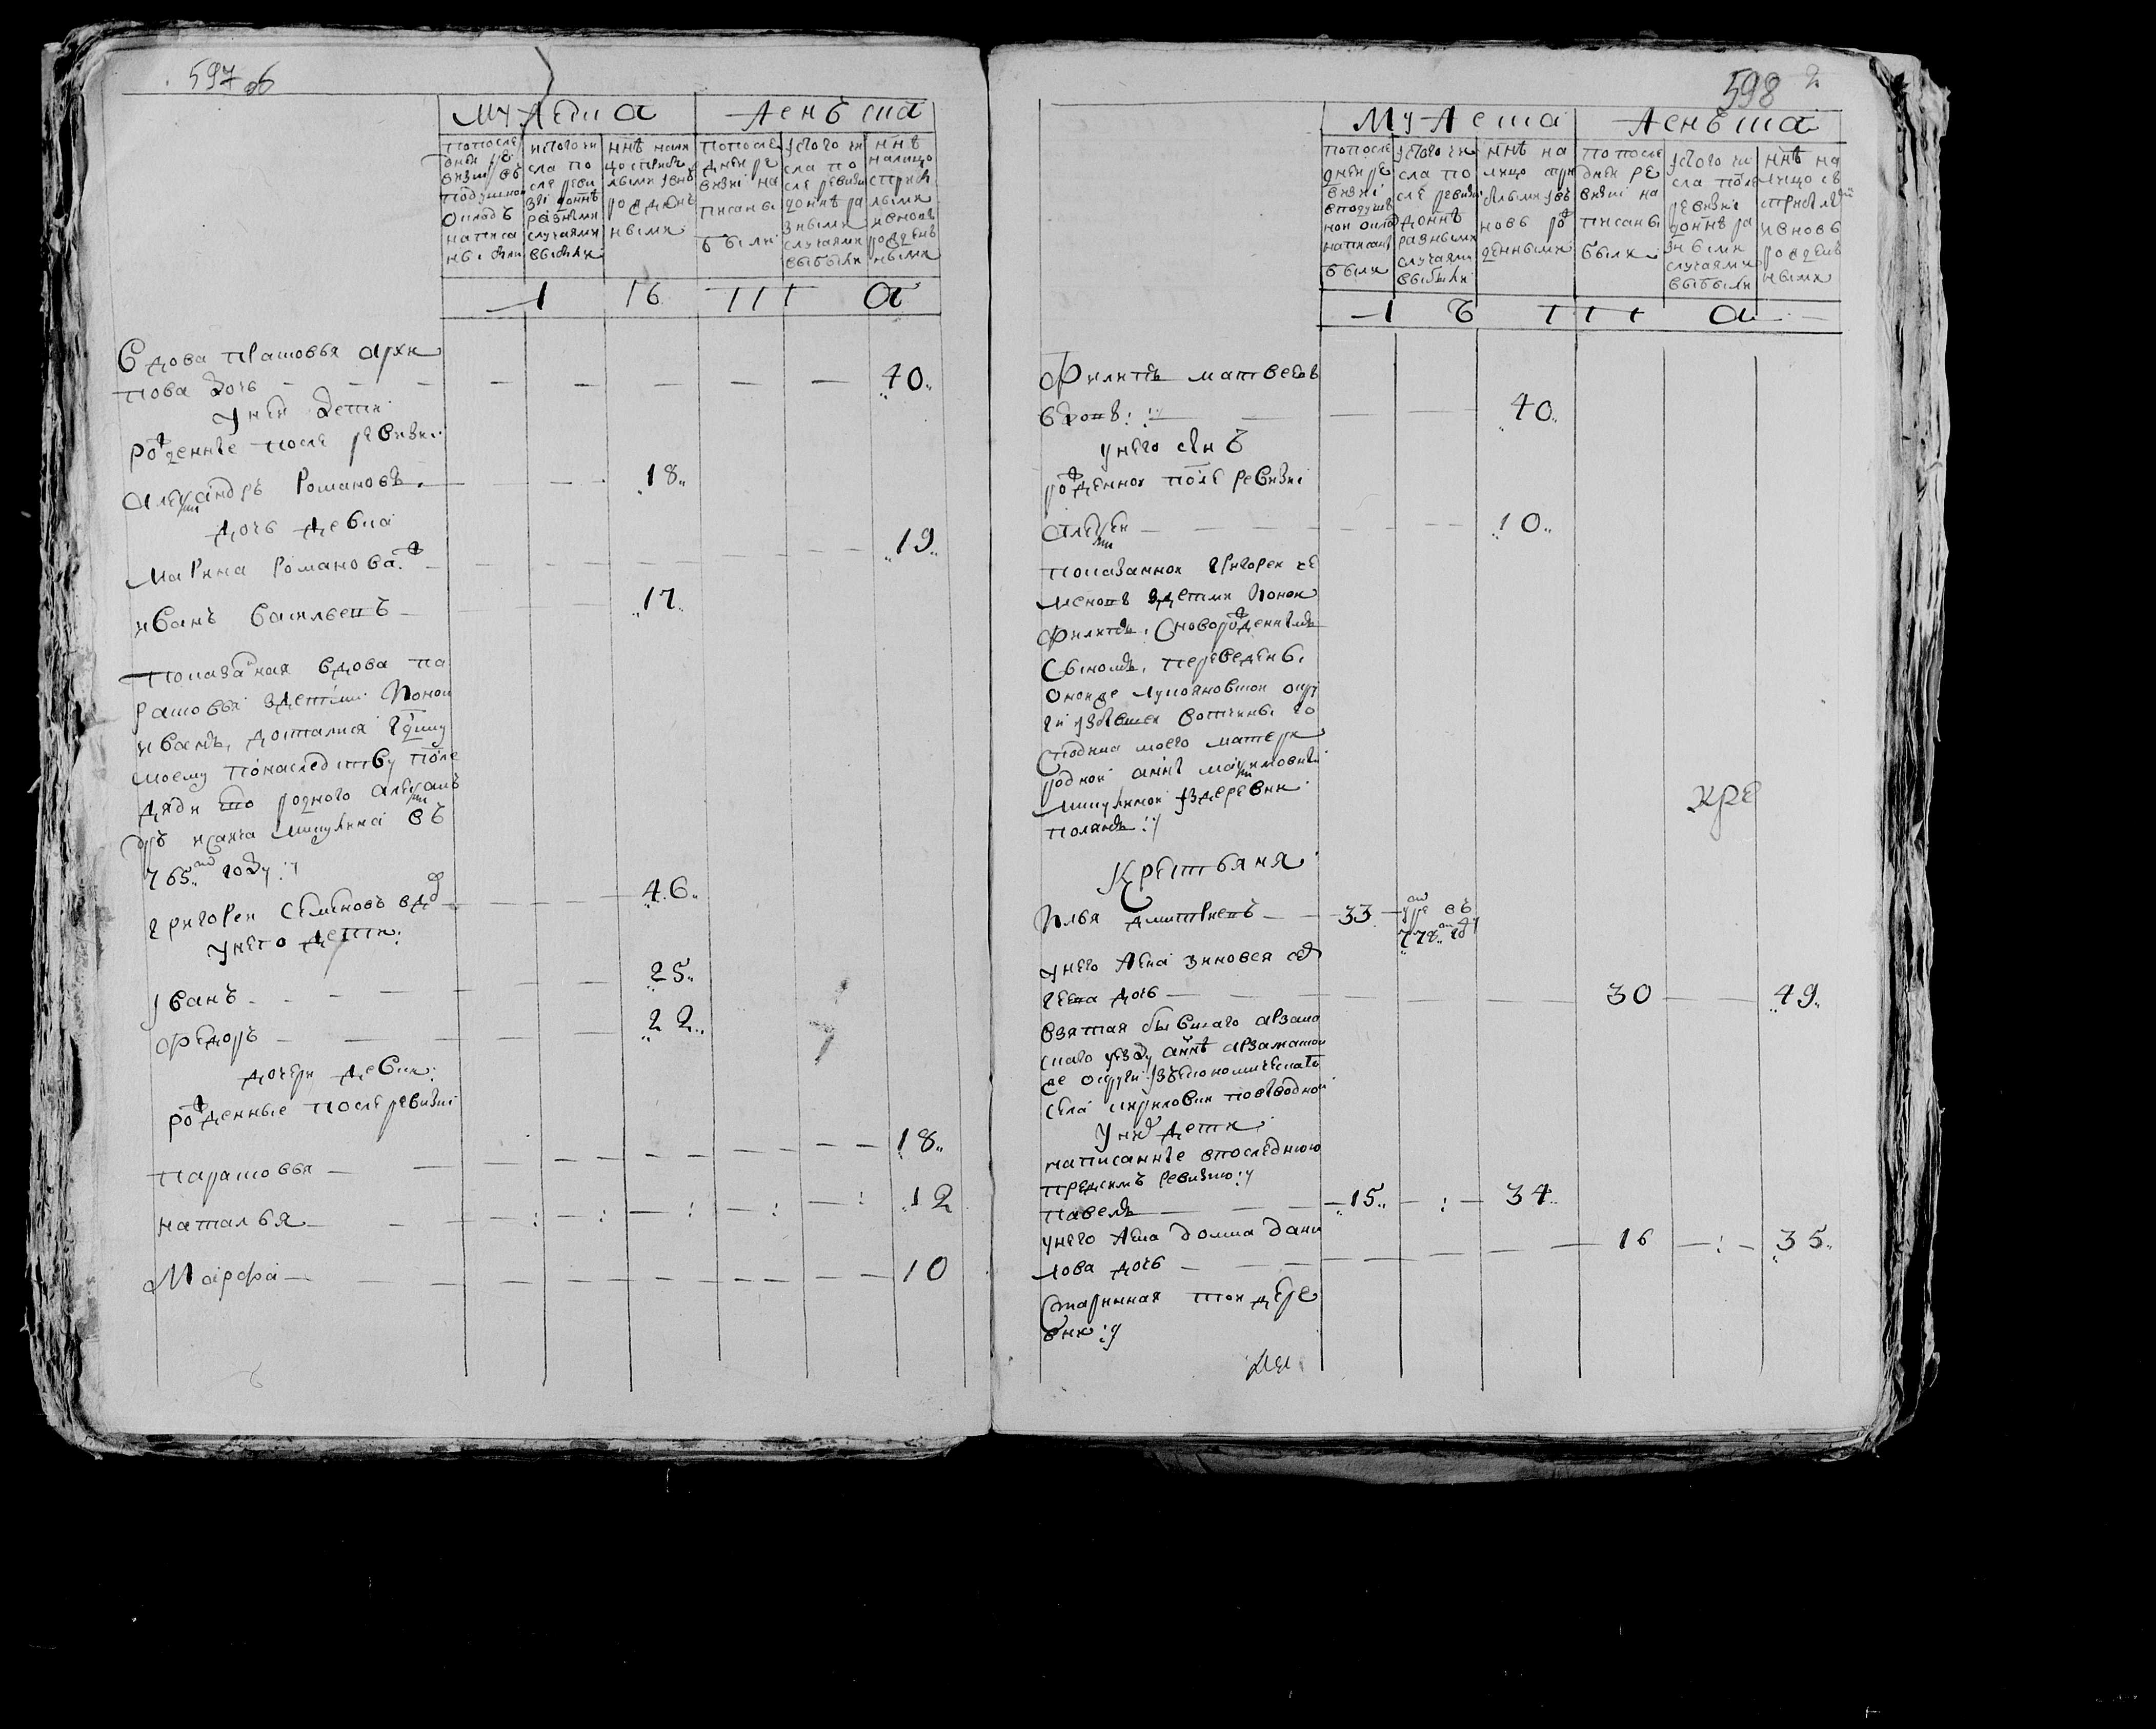 597 об
мужеска
женъска
попосле
дней ре
визии въ
подушной
окладъ
написа
ны были
истого чи
сла по
сле реви
зіи доннѣ
разными
случаями
выбыли
ннѣ нали
цо сприбы
лыми ївнѣ
рожден
ными
попосле
дней ре
визиі на
писаны
были
їстого чи
сла по
сле ревизи
доннѣ ра
зными
случаями
выбыли
ннѣ
налицо
сприб
лыми
ивновь
рожден
ными
Вдова прасковья архи
пова дочь 40
Унеи дети
рожденые после ревизиі
александръ Романовъ 18
дочь девка
Марина Романова 19
иванъ васильевъ 17
показаная вдова па
расковья здетми Иконои
иваномъ, досталися гдину
моему понаследству после
дяди его родного алексан
дръ исаича шипилина въ
765 году
григорей семеновъ вдо 46
Унего дети
їванъ 25
федоръ 22
дочери девки
рожденные после ревизиі
парасковья 18
наталья 12
Марфа 10
598
Мужеска
женъска
попосле
дней ре
визиі
вподуш
ной оклад
написан
были
їстого чи
сла по
сле ревизи
доннѣ
разными
случаями
выбыли
ннѣ на
лицо при
былыми ївъ
новь ро
жденными
попосле
дней ре
визиі на
писаны
были
їстого чи
сла после
ревизиі
доннѣ ра
зными
случаями
выбыли
ннѣ на
лицо съ
прибылы
ивновь
рожден
ными
Филипъ матвеевъ
вдовъ 40
унего сынъ
рожденной после ревизиі
алексей 10
показанной григорей се
меновъ здетми Иконои
филипъ, сноворожденнымъ
сыномъ, переведены
оноиже лукояновскои окру
ги избывшеи вотчины го
сподина моего матери
родной аннѣ максимовны
шипилинои издеревни
полянъ
Крестьяня
Илья дмитриевъ 33 умре въ
778 году
унего жена зиновея
геева дочь 30 49
взятая бывшаго арзама
скаго уезду аннѣ арзамаской
же округи изъекономическаго
села кириловки повыводной
Унихъ дети
написанные впоследнюю
предсимъ ревизию
павелъ 15 34
унего жена домна дани
лова дочь 16 35
Старинная той дере
вни
кре